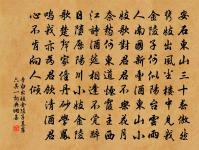 安石東山三十春傲然
攜妓出風塵樓中見我
金陵子何似陽臺雲雨
人南國新豐酒東山小
妓歌對君君不樂花月
奈愁何東道煙霞主西
江詩酒筵相逢不覺醉
日墮歷陽川小妓金陵
歌楚聲家僮丹砂學鳳
鳴我亦為君飲清酒君
心不肯向人傾
李白出妓金陵子呈盧